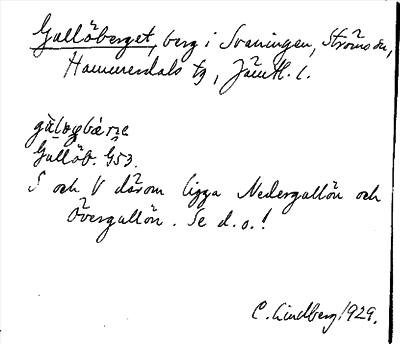 Gullöberget, berg i Svaningen, Ströms sn,
Hammerdals tg, Jämtl. l.
Gullöb. G53.
S och V därom ligga Nedergullön och
Övergullön. Se d. o.!
C. Lindberg 1929.